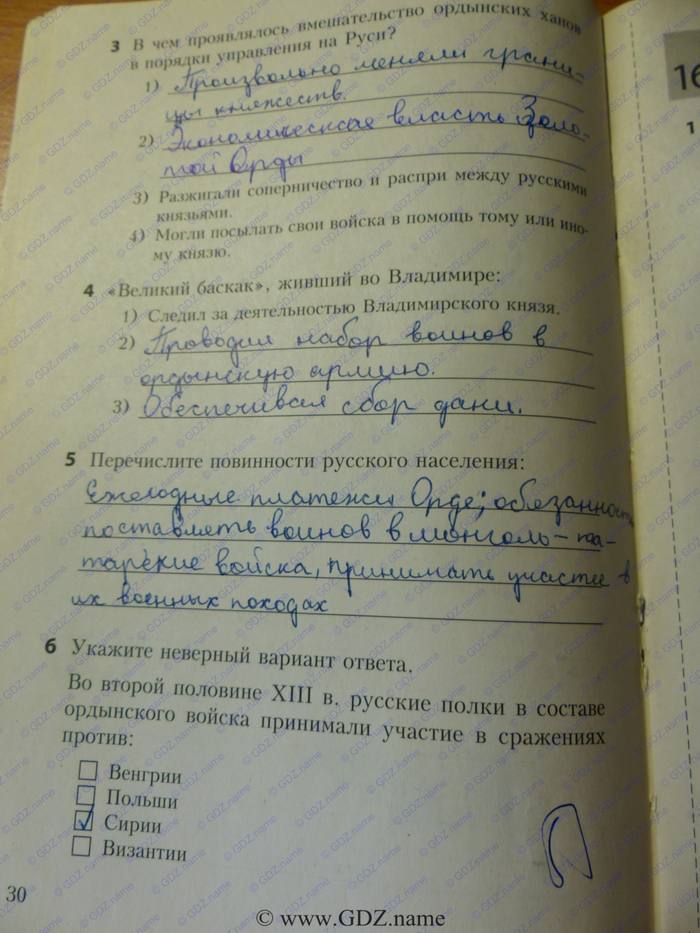 3 В чем проявлялось вмешательство ордынских ханов
в порядки управления на Руси?
1) Произвольно меняли грани-
цы княжеств.
2) Экономическая власть Золо-
той Орды
3) Разжигали соперничество и распри между русскими
князьями.
4) Могли посылать свои войска в помощь тому или ино-
му князю.
4 «Великий баскак», живший во Владимире:
1) Следил за деятельностью Владимирского князя.
2) Проводил набор воинов в
ордынскую армию.
3) Обеспечивал сбор дани.
5 Перечислите повинности русского населения:
Ежегодные платежи Орде; обязанность
поставлять воинов в монголь-та-
тарские войска, принимать участие в
их военных походах
6 Укажите неверный вариант ответа.
Во второй половине XIII в. русские полки в составе
ордынского войска принимали участие в сражениях
против:
Венгрии
Польши
Сирии
Византии
30
16
1
© www.GDZ.name